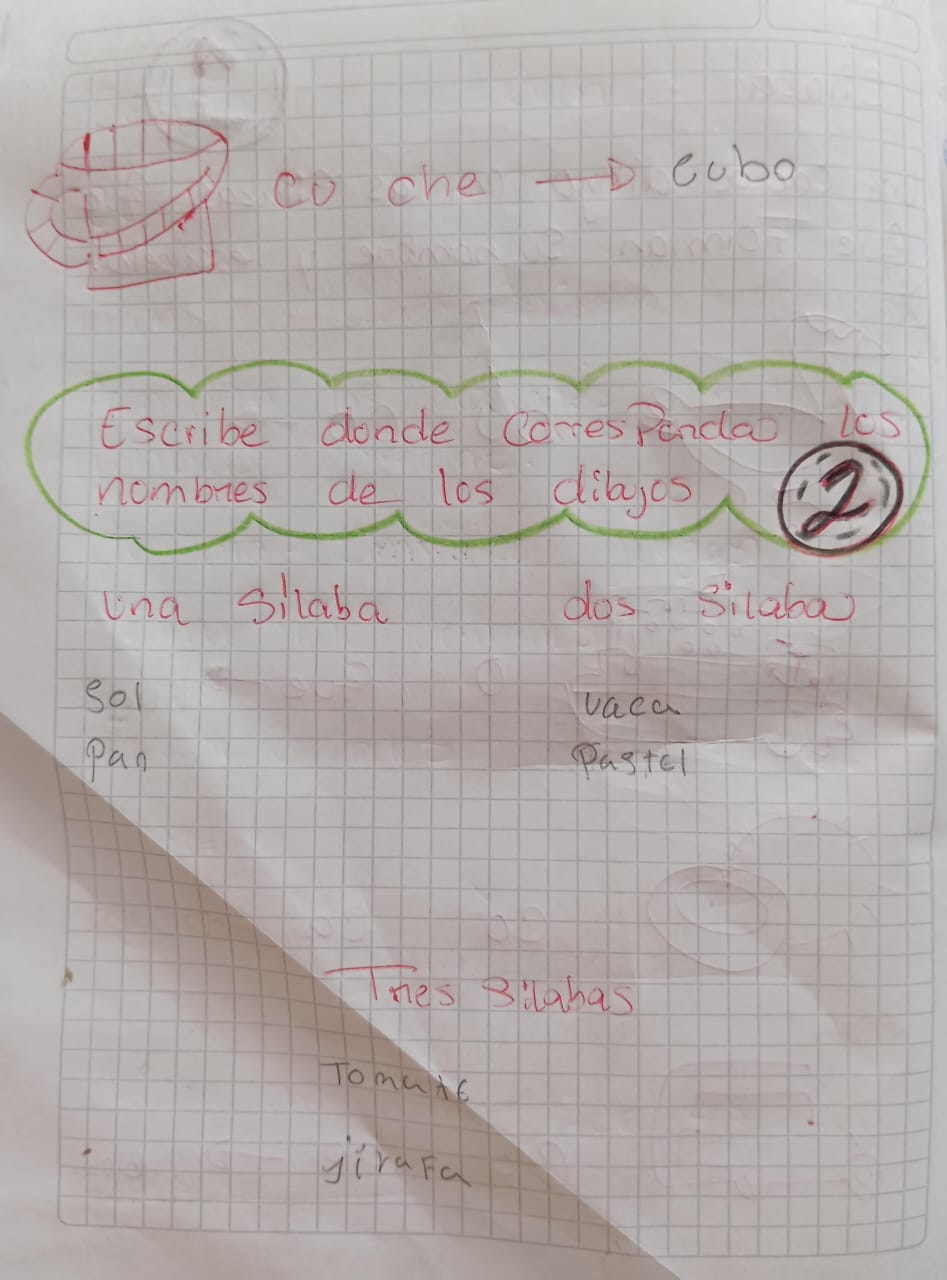 co che → cubo
Escribe donde corresponda los
nombres de los dibujos 2
una sílaba dos sílaba
sol vaca
pan pastel
Tres sílabas
Tomate
jirafa